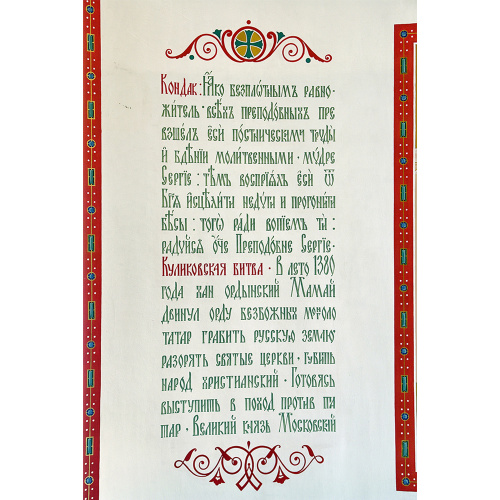 Кондак: Ꙗ҆́ко безпло́тнымъ равно-
житель всѣ́хъ преподо́бныхъ пре
взше́лъ є҆сѝ по́стническими труды̀
и҆ бдѣ́нїи моли́твенными · му́дре
Се́ргїе: тѣ́мъ воспрїѧ́лъ є҆сѝ ѿ
Бг҃а и҆сцѣлѧ́ти неду́ги и прогонѧ́ти
бѣ́сы: тогѡ̀ ра́ди вопїе́мъ тѝ:
ра́дуйсѧ ѻ҆́ч҃е Преподо́бне Се́ргїе.
Куликовская битва · В лето 1380
года хан ордынский Мамай
двинул орду безбожных моголо
татар грабить русскую землю
разорять святые церкви · губить
народ христианский · Готовясь
выступить в поход против та
тар · Великий князь Московский